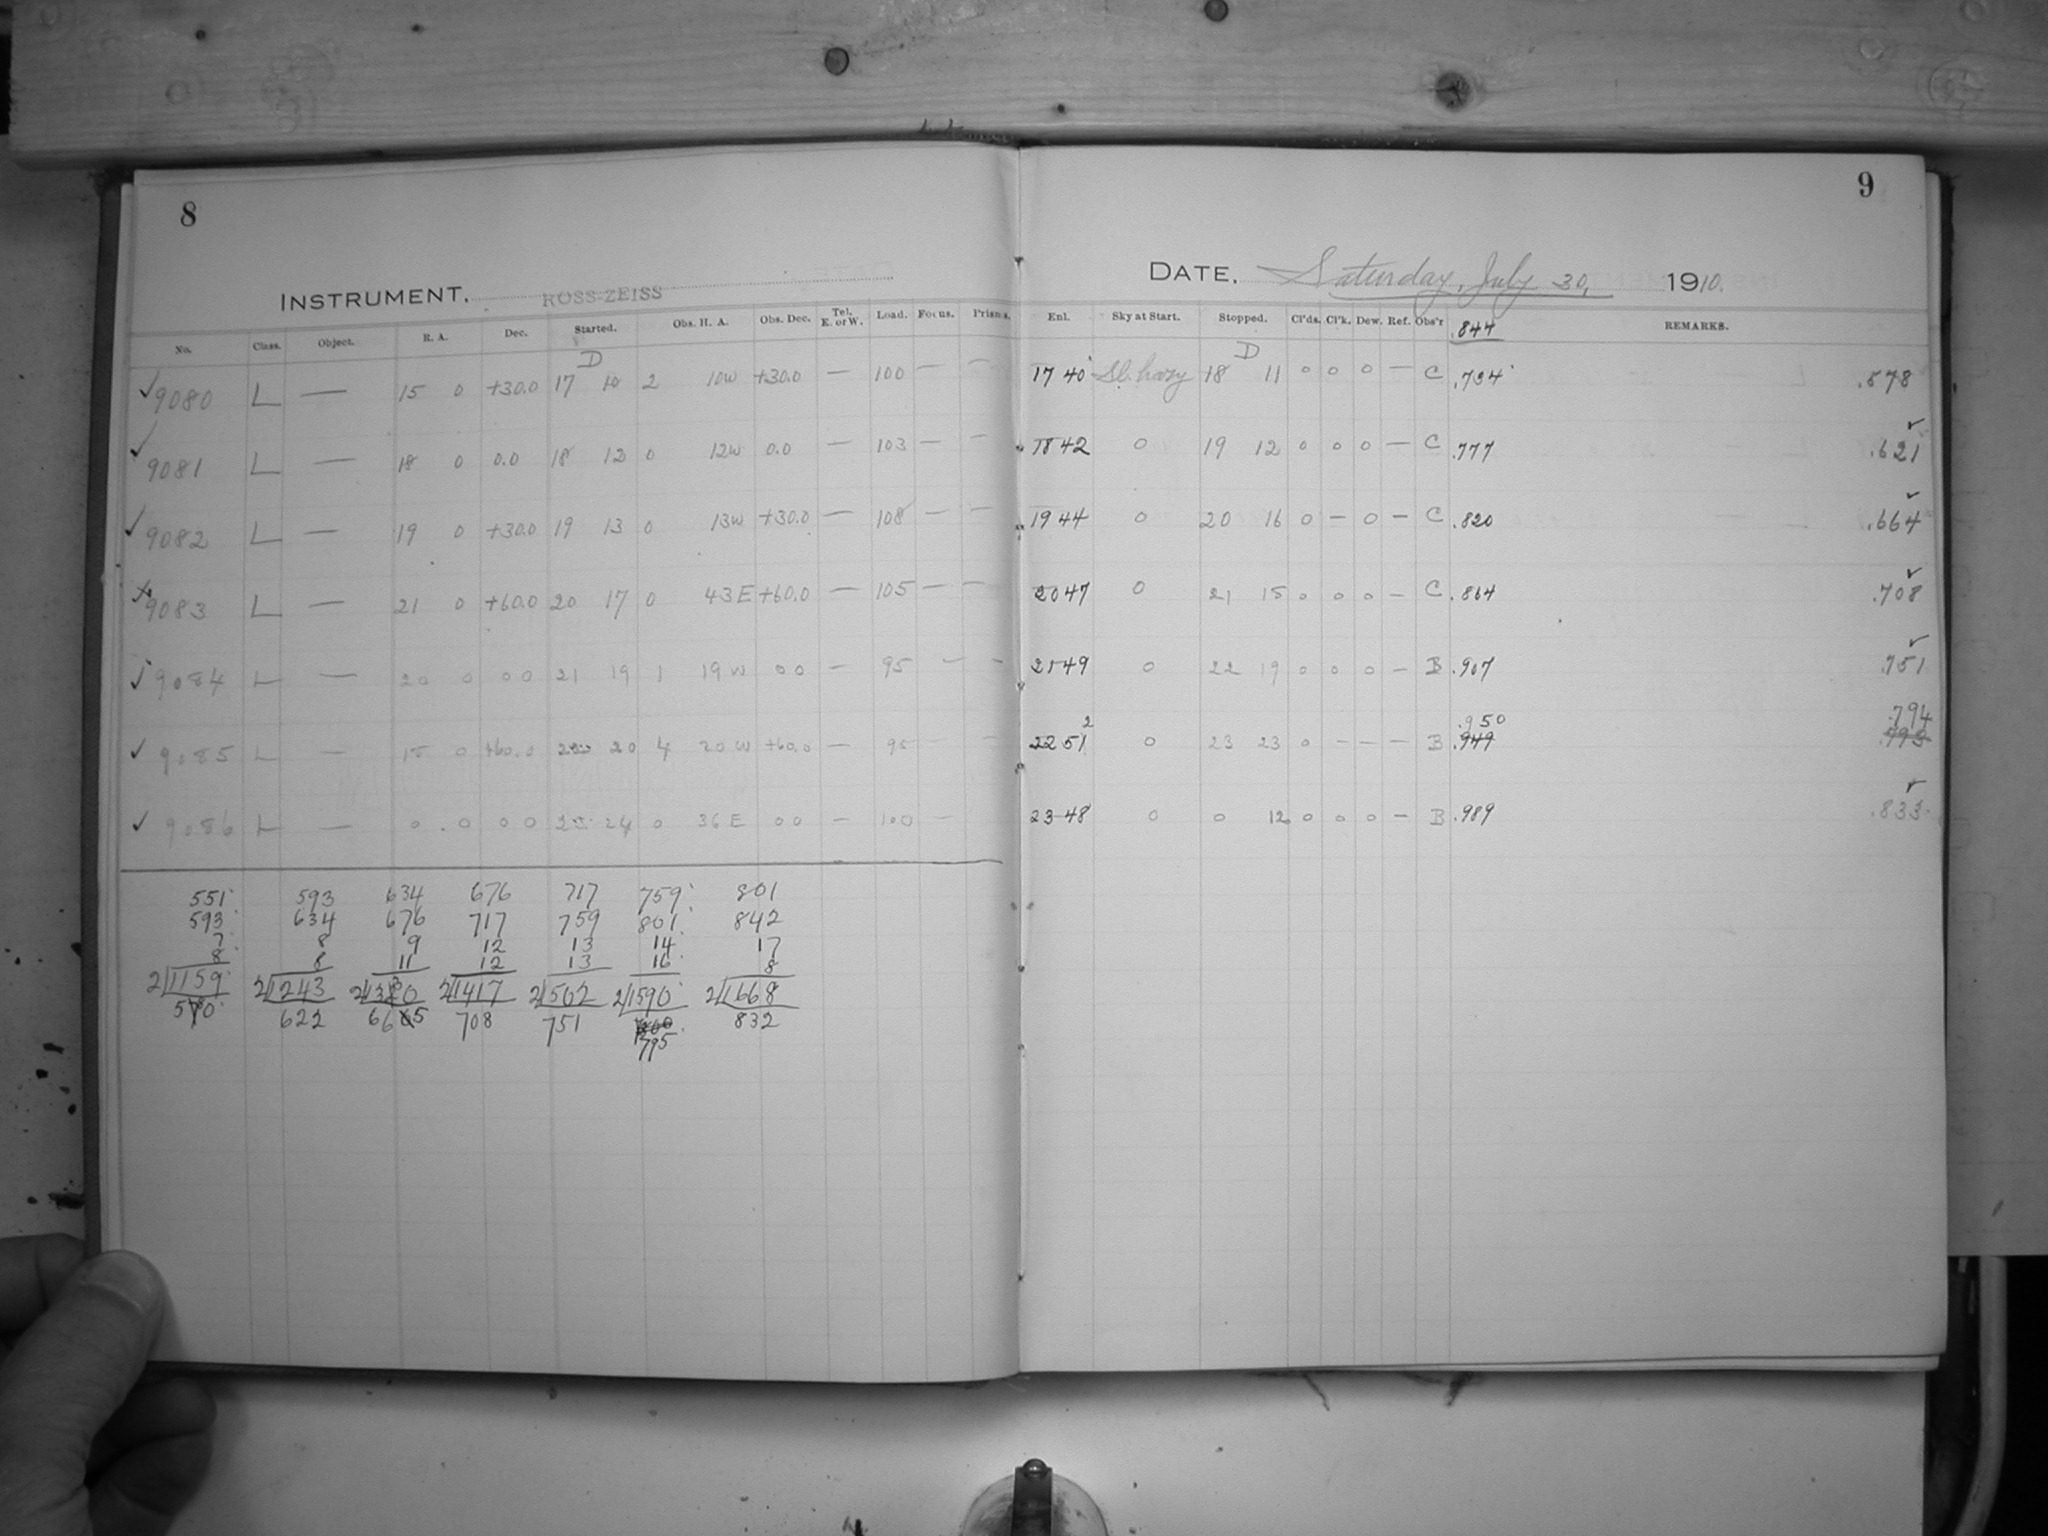 8
INSTRUMENT. ROSS-ZEISS
No. Class. Object. R. A. Dec. Started. Obs. H. A. Obs. Dec. Tel. E. or W. Load. Focus. Prisms.
D
9080 L — 15 0 +30.0 17 10 2 10W +30.0 — 100 — —
9081 L — 18 0 0.0 18 12 0 12W 0.0 — 103 — —
9082 L — 19 0 +30.0 19 13 0 13W +30.0 — 108 — —
9083 L — 21 0 +60.0 20 17 0 43E +60.0 — 105 — —
9084 L — 20 0 00 21 19 1 19W 00 — 95 — —
9085 L — 15 0 +60.0 20 4 20W +60.0 — 95 — —
9086 L — 0 .0 00 24 0 36E 00 — 100 —
551 593 634 676 717 759 801
593 634 676 717 759 801 842
7 8 9 12 13 14 17
8 8 11 12 13 16 8
2/1159 2/1243 2/1380 2/1417 2/1502 2/1590 2/1668
580 622 665 708 751 832
795
9
DATE. Saturday, July 30, 1910.
Enl. Sky at Start. Stopped. Cl'ds. Cl'k. Dew. Ref. Obs'r .844 REMARKS.
D
17 40 Sl. hazy 18 11 0 0 0 — C .734 .578
18 42 0 19 12 0 0 0 — C .777 .621
19 44 0 20 16 0 — 0 — C .820 .664
20 47 0 21 15 0 0 0 — C .864 .708
21 49 0 22 19 0 0 0 — B .907 .751
2 .950 .794
22 51 0 23 23 0 — — — B .949 .793
23 48 0 0 12 0 0 0 — B .989 .833